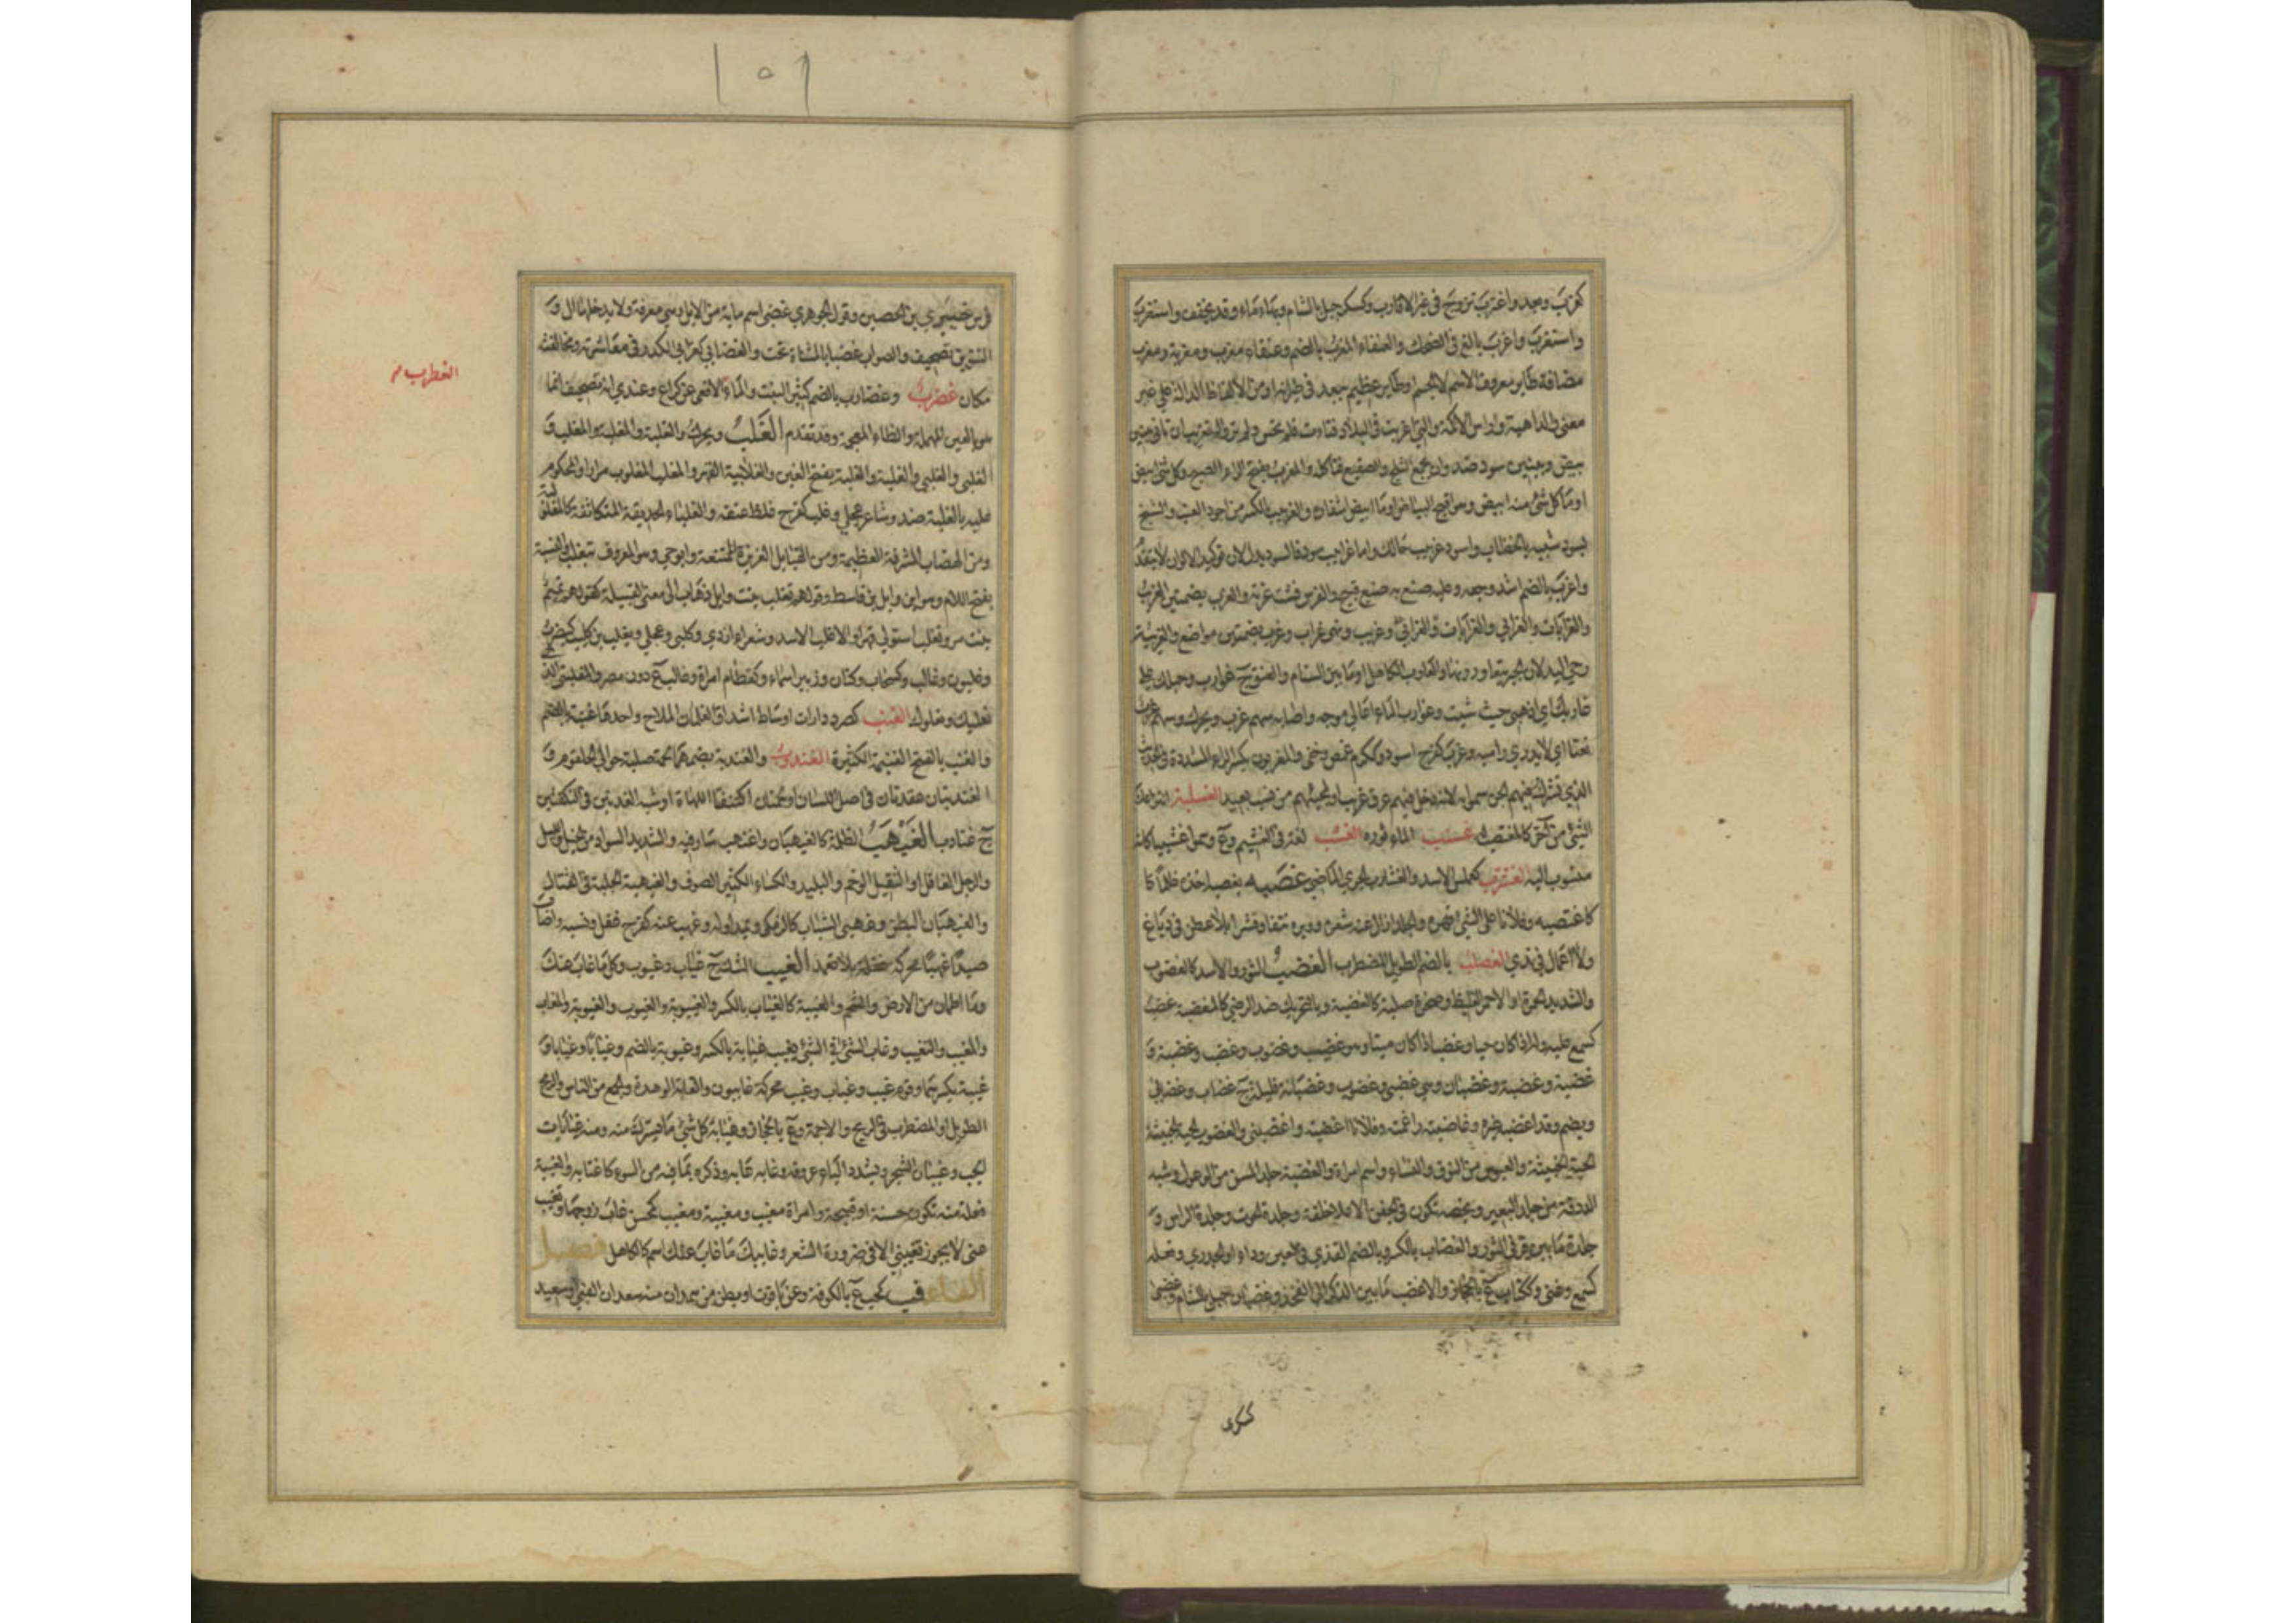 كغرب وبعد واغترب تزوج في غير الاقارب وكسكر جبل بالشام وبهاء ماء وقد يخفف واستغرب
واستغرب واغرب بالغ في الضحك والعنقاء المغرب بالضم وعنقاء مغرب ومغربة ومغرب
مضافة طاير معروف الاسم لا الجسم او طاير عظيم يبعد في طيرانه او من الالفاظ الدالة على غير
معنى والداهية وراس الاكمة والتي اغربت في البلاد فنأت فلم تحس ولم تر والتغريب ان تاتي ببنين
بيض وببنين سود ضد وان تجمع الثلج والصقيع فتاكله والمغرب بفتح الراء الصبح وكل شئ ابيض
او ما كل شئ منه ابيض وهو اقبح البياض او ما ابيض اشفاره والغربيب بالكسر من اجود العنب والشيخ
يسود شيبه بالخضاب واسود غربيب حالك واما غرابيب سود فالسود بدل لان توكيد الالوان لا يتقدم
واغرب بالضم اشتد وجعه وعليه صنع به صنع قبيح والفرس فشت غرته والغرب بضمتين الغريب
والغرابات والغرابي والغرابات والغرابي وغريب ونهي غراب وغرب بضمتين مواضع والغريبة
رحى اليد لان الجيران يتعاورونها والغارب الكاهل او ما بين السنام والعنق ج غوارب وحبلك على
غاربك اي اذهبي حيث شيت وغوارب الماء اعالي موجه واصابه سهم غرب ويحرك وسهم غرب
نعتا اي لا يدرى راميه وغرب كفرح اسود وككرم غمض وخفي والمغربون بكسر الراء المشددة في الحديث
الذي تشرك فيهم الجن سموا به لانه دخل فيهم عرق غريب او لمجيئهم من نسب بعيد الغسلبة انتزاعك
الشئ من آخر كالمغتصب له غسنب الماء ثوره الغشب لغة في الغشم وع وسموا غشيبا كانه
منسوب اليه الغشرب كعملس الاسد والغشارب الجري الماضي غصبه يغصبه اخذه ظلما كا
كاغتصبه وفلانا على الشئ قهره والجلد ازال عنه شعره ووبره نتفا وقشرا بلا عطن في دباغ
ولا اعمال في ندي الغصلب بالضم الطويل المضطرب الغضب الثور والاسد كالغضوب
والشديد الحمرة او الاحمر الغليظ وصخرة صلبة كالغضبة وبالتحريك ضد الرضى كالمغضبة غضب
كسمع عليه وله اذا كان حيا وغضب به اذا كان ميتا وهو غضب وغضوب وغضب وغضبة و
غضبة وغضبة وغضبان وهي غضبى وغضوب وغضبانة قليلة ج غضاب وغضابى
ويضم وقد اغضبه غيره وغاضبته راغمته وفلانا اغضبته واغضبني والغضوب الحية الخبيثة
الحية الخبيثة والعبوس من النوق والنساء واسم امراة والغضبة جلد المسن من الوعول وشبه
الدرقة من جلد البعير وبخصة تكون في الجفن الاعلى خلقة وجلدة الحوت وجلدة الراس و
جلدة ما بين قرني الثور والغضاب بالكسر وبالضم القذى في العين وداء او الجدري وفعله
كسمع وعني وككتاب ع بالحجاز والاغضب ما بين الذكر الى الفخذ وغضبان جبل بالشام وغضبى
كسكرى
١٥١
فرس خيبري بن الحصين وقول الجوهري غضبى اسم ماية من الابل وهي معرفة ولا يدخلها ال و
التنوين تصحيف والصواب غضيا بالمثناة تحت والغضابي كغرابي الكدر في معاشرته ومخالفته
مكان غضرب وغضارب بالضم كثير النبت والماء الافعى عن كراع وعندي انه تصحيف انما
هو بالعين المهملة والظاء المعجمة وقد تقدم الغلب ويحرك والغلبة والمغلبة والمغلب و
الغلبى والغلبى والغلبة والغلبة بفتح الغين والغلابية القهر والمغلب المغلوب مرارا والمحكوم
عليه بالغلبة ضد وشاعر عجلي وغلب كفرح غلظ عنقه والغلباء الحديقة المتكاثفة كالمغلولبة
ومن الهضاب المشرفة العظيمة ومن القبايل العزيزة الممتنعة وابو حي وهو المعروف بتغلب والنسبة
بفتح اللام وهو ابن وايل بن قاسط وقولهم تغلب بنت وايل ذهاب الى معنى القبيلة كقولهم تميم
بنت مر وتغلب استولى قهرا والاغلب الاسد وشعراء ازدي وكلبي وعجلي ويغلب بن كليب كيضرب
وغلبون وغالب وكسحاب وكتان وزبير اسماء وكقطام امراة وغالب ع دون مصر والمغلبنتي الذي
يغلبك ويعلوك الغنب كصرد دارات اوساط اشداق الغلمان الملاح واحدها غنبة بالضم
والغنب بالفتح الغنيمة الكثيرة الغندوب والغندبة بضمهما لحمة صلبة حوالي الحلقوم و
الغندبتان عقدتان في اصل اللسان او لحمتان اكتنفتا اللهاة او شبه الغدتين في النكفتين
ج غنادب الغيهب الظلمة كالغيهبان واغتهب سار فيه والشديد السواد من الخيل والليل
والرجل الغافل او الثقيل الوخم والبليد والكساء الكثير الصوف والغيهبة الجلبة في القتال
والغيهبان البطن وغهبى الشباب كالزمكى ويمد اوله وغهب عنه كفرح غفل ونسيه واصاب
صيدا غهبا محركة غفلة بلا تعمد الغيب الشك ج غياب وغيوب وكل ما غاب عنك
وما اطمان من الارض والشحم والغيبة كالغياب بالكسر والغيبوبة والغيوب والغيوبة والمغاب
والمغيب والتغيب وغاب الشئ في الشئ يغيب غيابة بالكسر وغيوبة بالضم وغيابا وغيابا و
غيبة بكسرهما وقوم غيب وغياب وغيب محركة غايبون والغابة الوهدة والجمع من الناس والرمح
الطويل او المضطرب في الريح والاجمة وع بالحجاز وغيابة كل شئ ما سترك منه ومنه غيابات
الجب وغيبان الشجر وتشدد الياء عروقه وغابه عابه وذكره بما فيه من السوء كاغتابه والغيبة
فعلة منه تكون حسنة او قبيحة وامراة مغيب ومغيبة ومغيب كمحسن غاب زوجها وتغيب
عني لا يجوز تغيبني الا في ضرورة الشعر وغايبك ما غاب عنك اسم كالكاهل فصل
الفاء فب كجب ع بالكوفة وعن ياقوت او بطن من همدان منه سعدان الفبي او سعيد